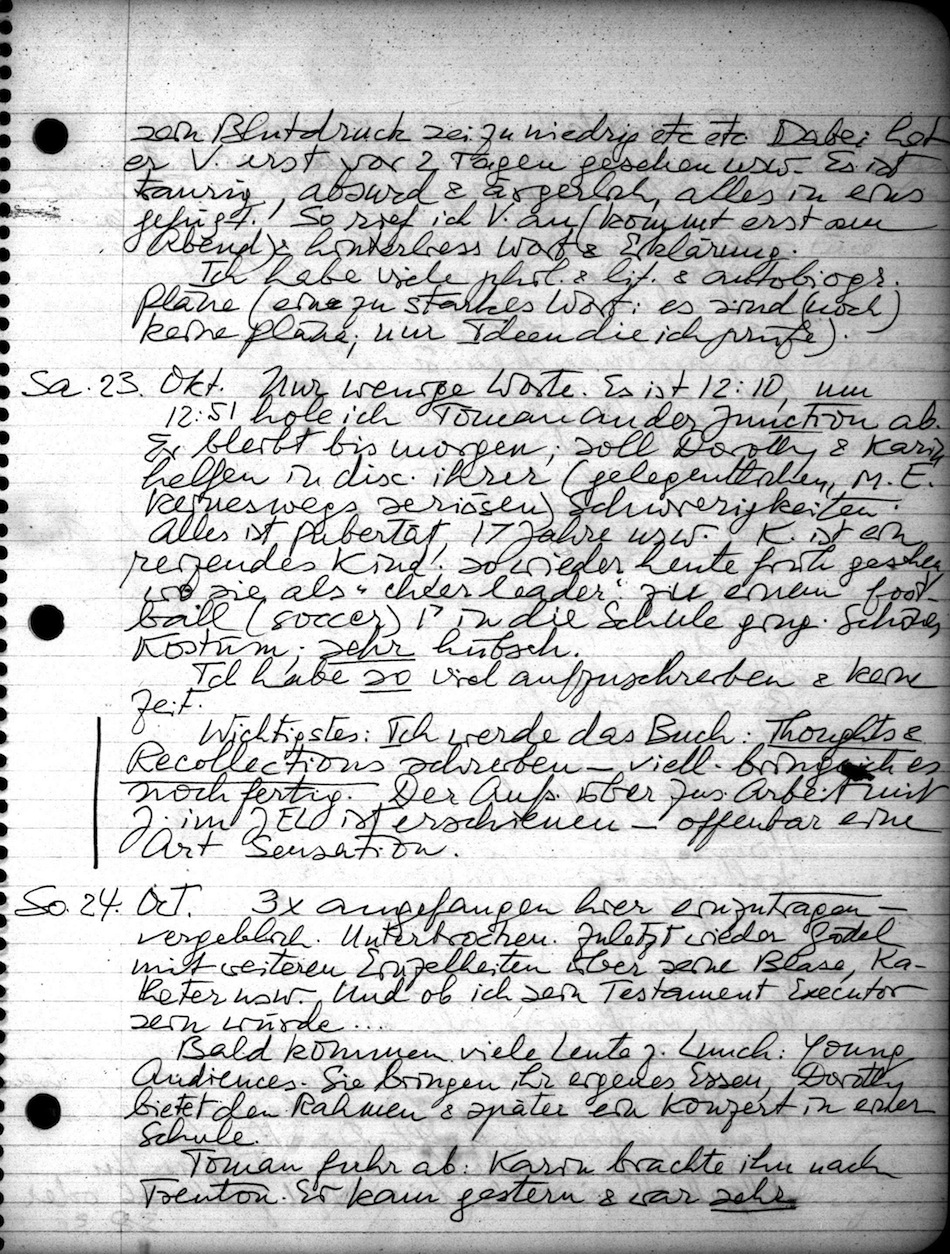 sein Blutdruck sei zu niedrig etc etc. Dabei hat
er V. erst vor 2 Tagen gesehen usw. Es ist
traurig, absurd & ärgerlich, alles in eins
gefügt! So rief ich V. an (kommt erst am
Abend) & hinterliess Wort & Erklärung.
Ich habe viele phil. & lit. & autobiogr.
Pläne (eine zu starkes Wort: es sind (noch)
keine Pläne, nur Ideen die ich prüfe).
Sa. 23. Okt. Nur wenige Worte. Es ist 12:10, um
12:51 hole ich Toman an der Junction ab.
Er bleibt bis morgen; soll Dorothy & Karin
helfen in disc. ihrer (gelegentlichen, m. E.
keineswegs seriösen) Schwierigkeiten.
Alles ist Pubertät, 17 Jahre usw. K. ist ein
reizendes Kind! so wieder heute früh gesehen
wo sie als "cheerleader" zu einem foot-
ball (soccer) in die Schule ging. Schönes
Kostüm; sehr hübsch.
Ich habe so viel aufzuschreiben & keine
Zeit.
Wichtigstes: Ich werde das Buch: Thoughts &
Recollections schreiben – viell. bring ich es
noch fertig. Der Aufs. über Zus. Arbeit mit
J. im JELO ist erschienen – offenbar eine
Art Sensation.
So. 24. Oct. 3x angefangen hier einzutragen –
vergeblich. Unterbrochen. Zuletzt wieder Gödel
mit weiteren Einzelheiten über seine Blase, Ka-
theter usw. Und ob ich sein Testament Executor
sein würde...
Bald kommen viele Leute z. Lunch: Young
Audiences. Sie bringen ihr eigenes Essen, Dorothy
bietet den Rahmen & später ein Konzert in einer
Schule.
Toman fuhr ab: Karin brachte ihn nach
Trenton. Er kam gestern & war sehr